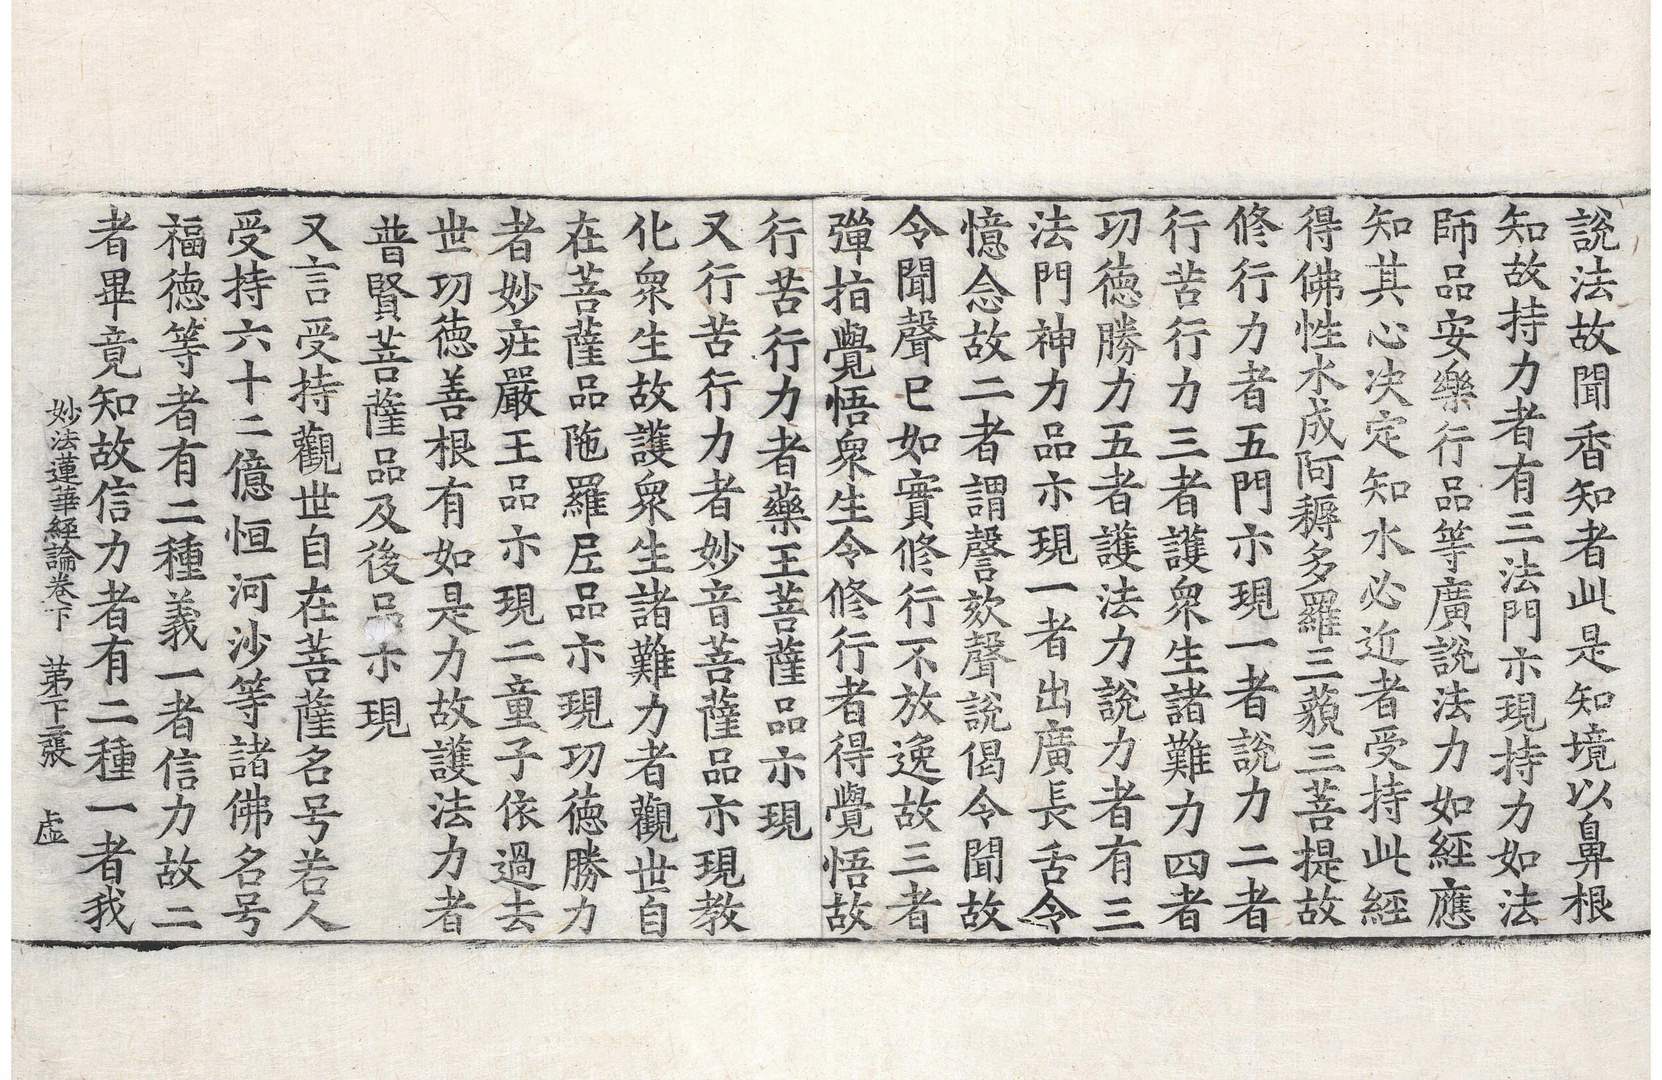 說法故聞香知者此是知境以鼻根
知故持力者有三法門示現持力如法
師品安樂行品等廣說法力如經應
知其心决定知水必近者受持此經
得佛性水成阿耨多羅三藐三菩提故
修行力者五門示現一者說力二者
行苦行力三者護衆生諸難力四者
功德勝力五者護法力說力者有三
法門神力品示現一者出廣長舌令
憶念故二者謂謦欬聲說偈令聞故
令聞聲已如實修行不放逸故三者
彈指覺悟衆生令修行者得覺悟故
行苦行力者藥王菩薩品示現
又行苦行力者妙音菩薩品示現教
化衆生故護衆生諸難力者觀世自
在菩薩品陁羅尼品示現功德勝力
者妙莊嚴王品示現二童子依過去
世功德善根有如是力故護法力者
普賢菩薩品及後品示現
又言受持觀世自在菩薩名号若人
受持六十二億恒河沙等諸佛名号
福德等者有二種義一者信力故二
者畢竟知故信力者有二種一者我
妙法蓮華經論卷下 第十三張 虛